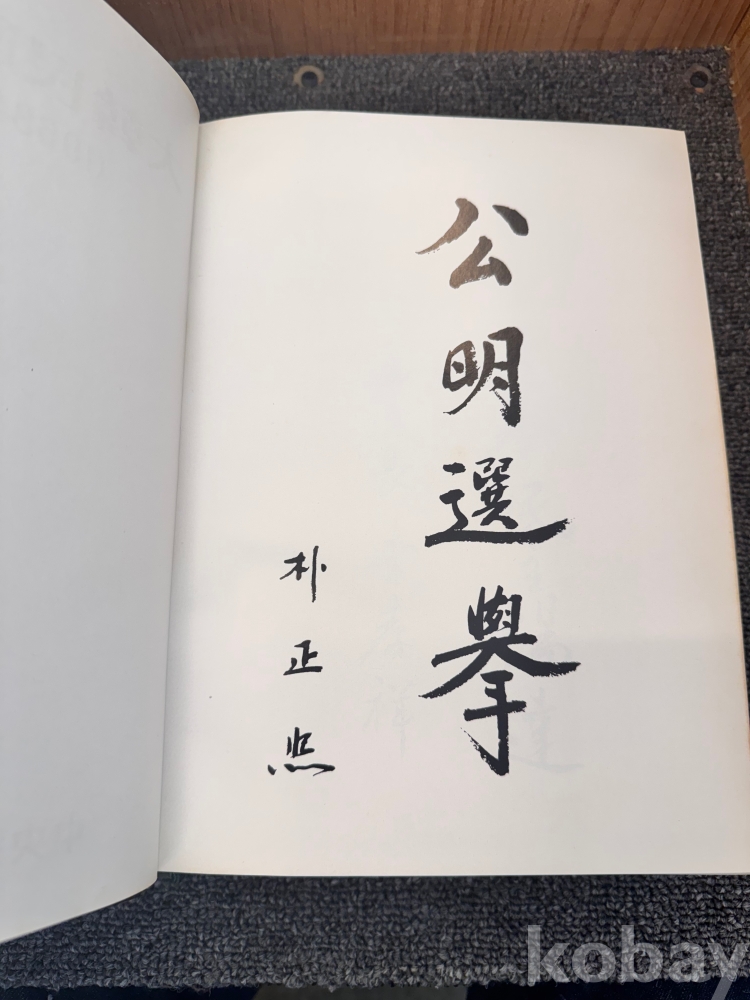 公明選擧
朴正熙
kobay